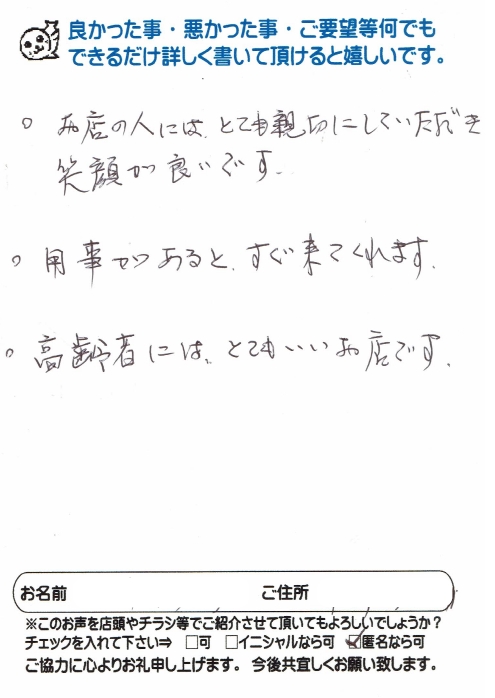 良かった事・悪かった事・ご要望等何でも
できるだけ詳しく書いて頂けると嬉しいです。
○ お店の人には、とても親切にしていただき
笑顔が良いです。
○ 用事があると、すぐ来てくれます。
○ 高齢者には、とてもいいお店です。
お名前 ご住所
※このお声を店頭やチラシ等でご紹介させて頂いてもよろしいでしょうか？
チェックを入れて下さい⇒ □可 □イニシャルなら可 ☑匿名なら可
ご協力に心よりお礼申し上げます。 今後共宜しくお願い致します。